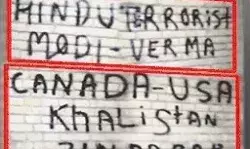 HINDU TERRORIST
MODI-VERMA
CANADA-USA
KHALISTAN